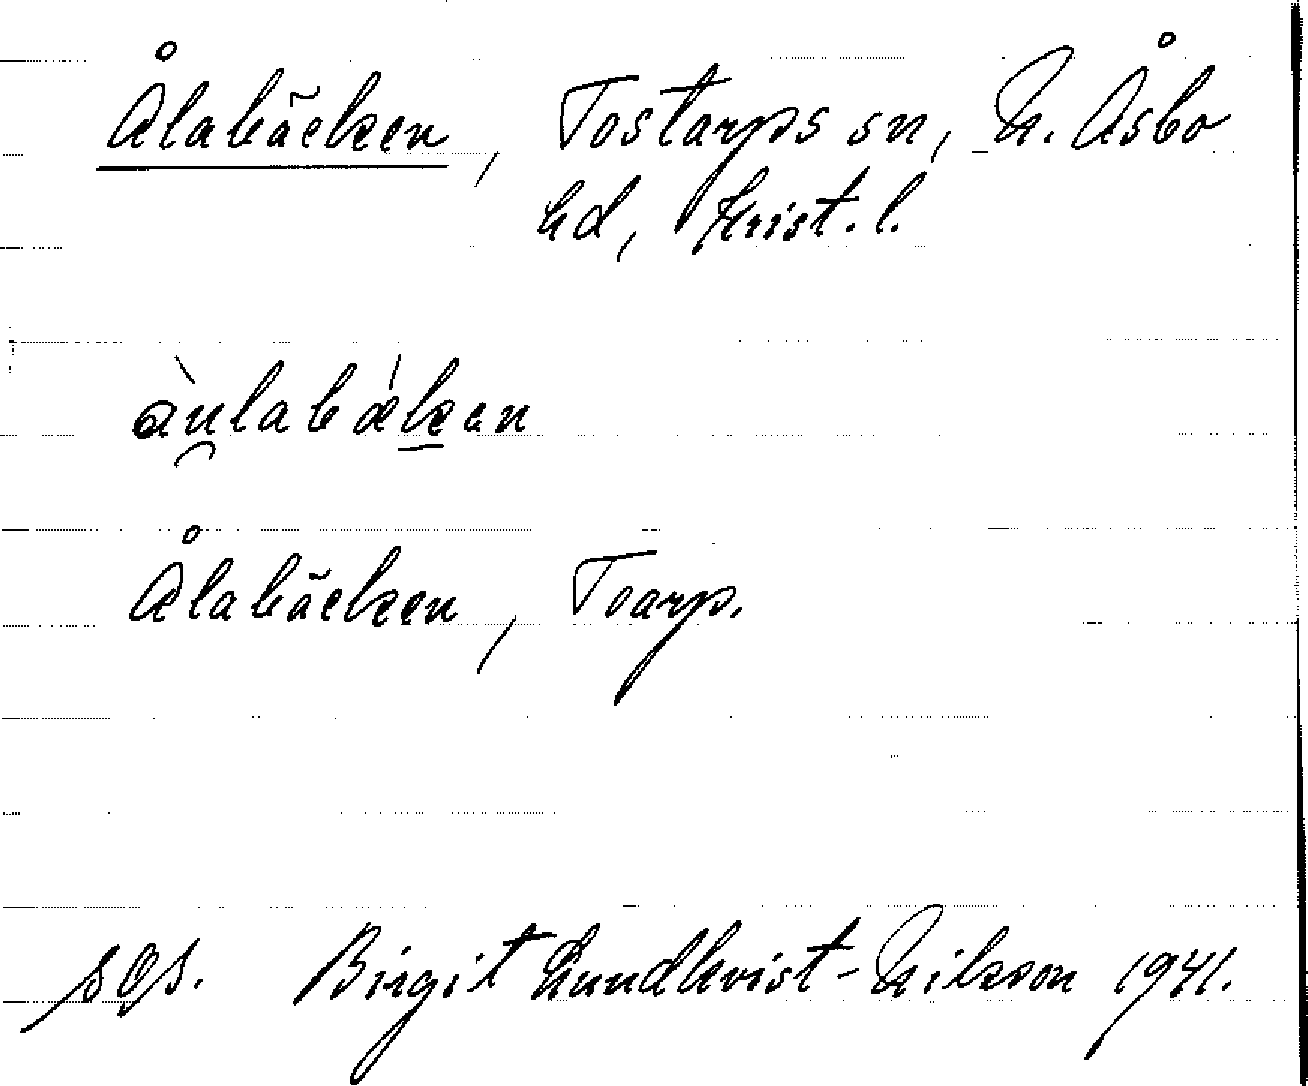 Ålabäcken, Tostarps sn, N. Åsbo
hd, Krist. l.
àu̯labǽken
Ålabäcken, Toarp.
sgs. Birgit Lundkvist-Nilsson 1941.